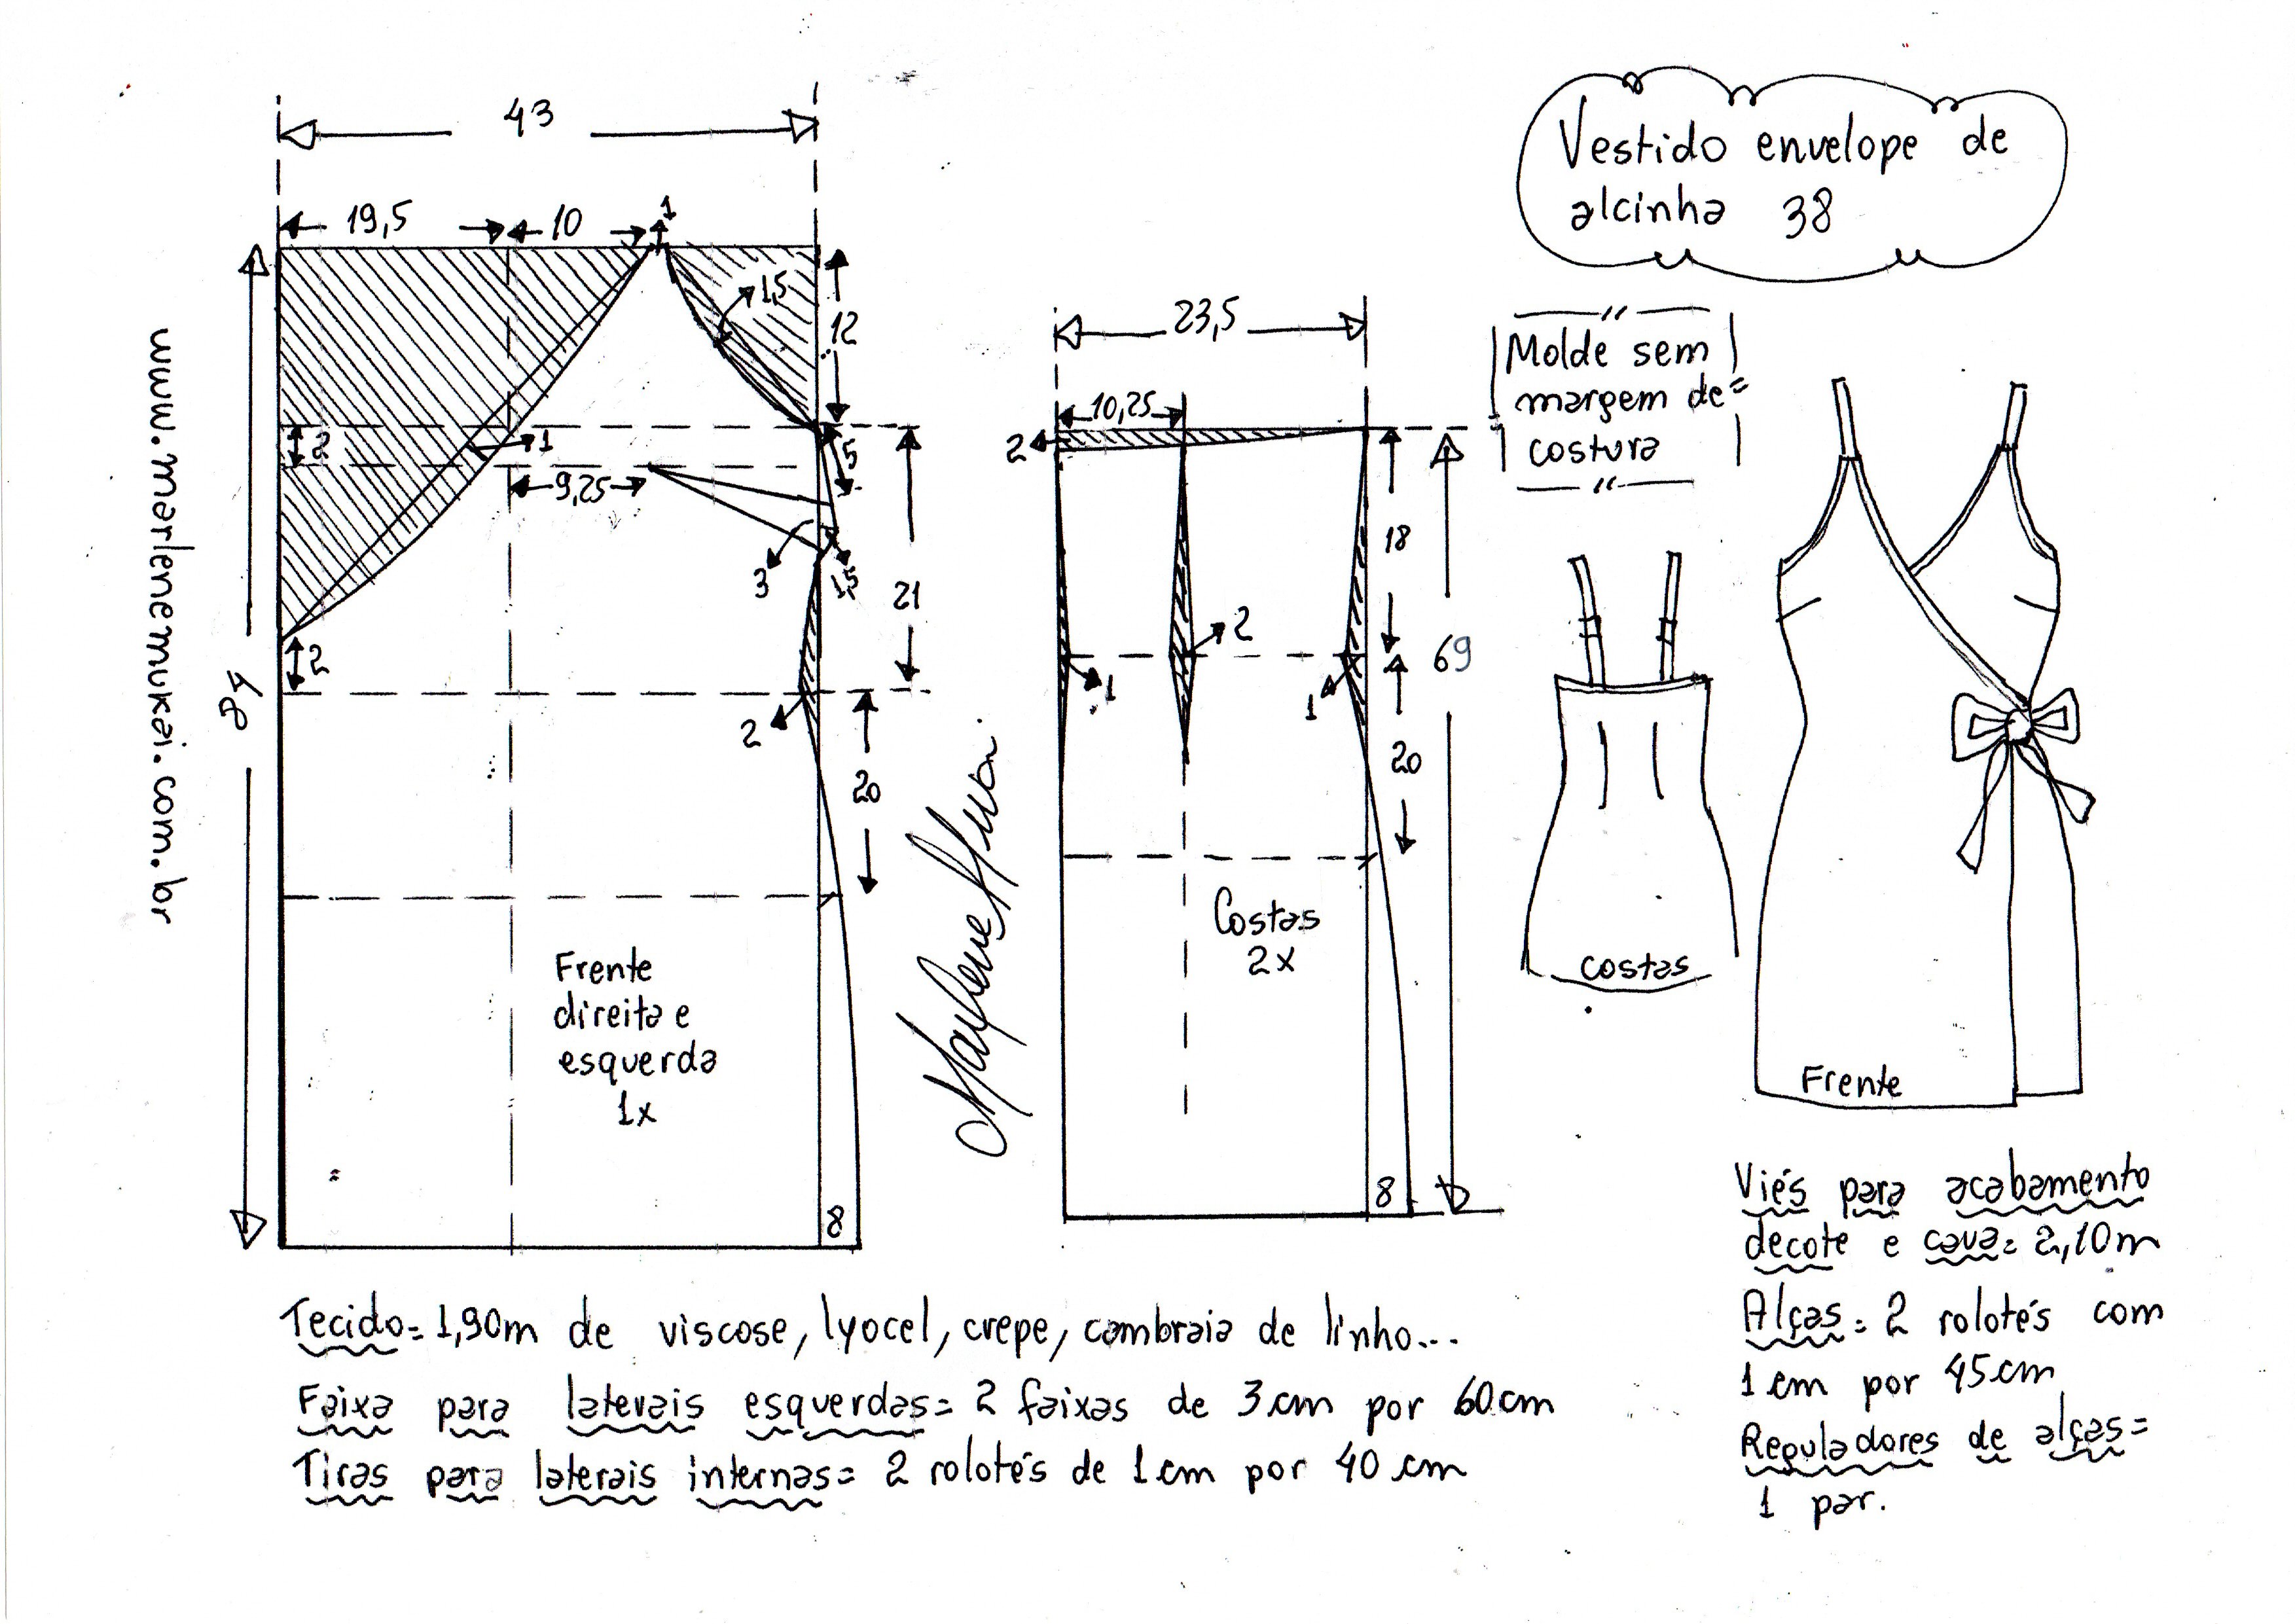 43
19,5
10
1
1,5
12
2
1
5
9,25
3
1,5
21
2
2
20
84
8
Frente
direita e
esquerda
1x
www.marlenemukai.com.br
23,5
10,25
2
18
2
1
1
69
20
Costas
2x
8
Vestido envelope de
alcinha 38
Molde sem
margem de=
costura
costas
Frente
Tecido= 1,90m de viscose, lyocel, crepe, cambraia de linho...
Faixa para laterais esquerdas= 2 faixas de 3cm por 60cm
Tiras para laterais internas= 2 rolotés de 1cm por 40 cm
Viés para acabamento
decote e cava= 2,10m
Alças= 2 rolotés com
1cm por 45cm
Reguladores de alças=
1 par.